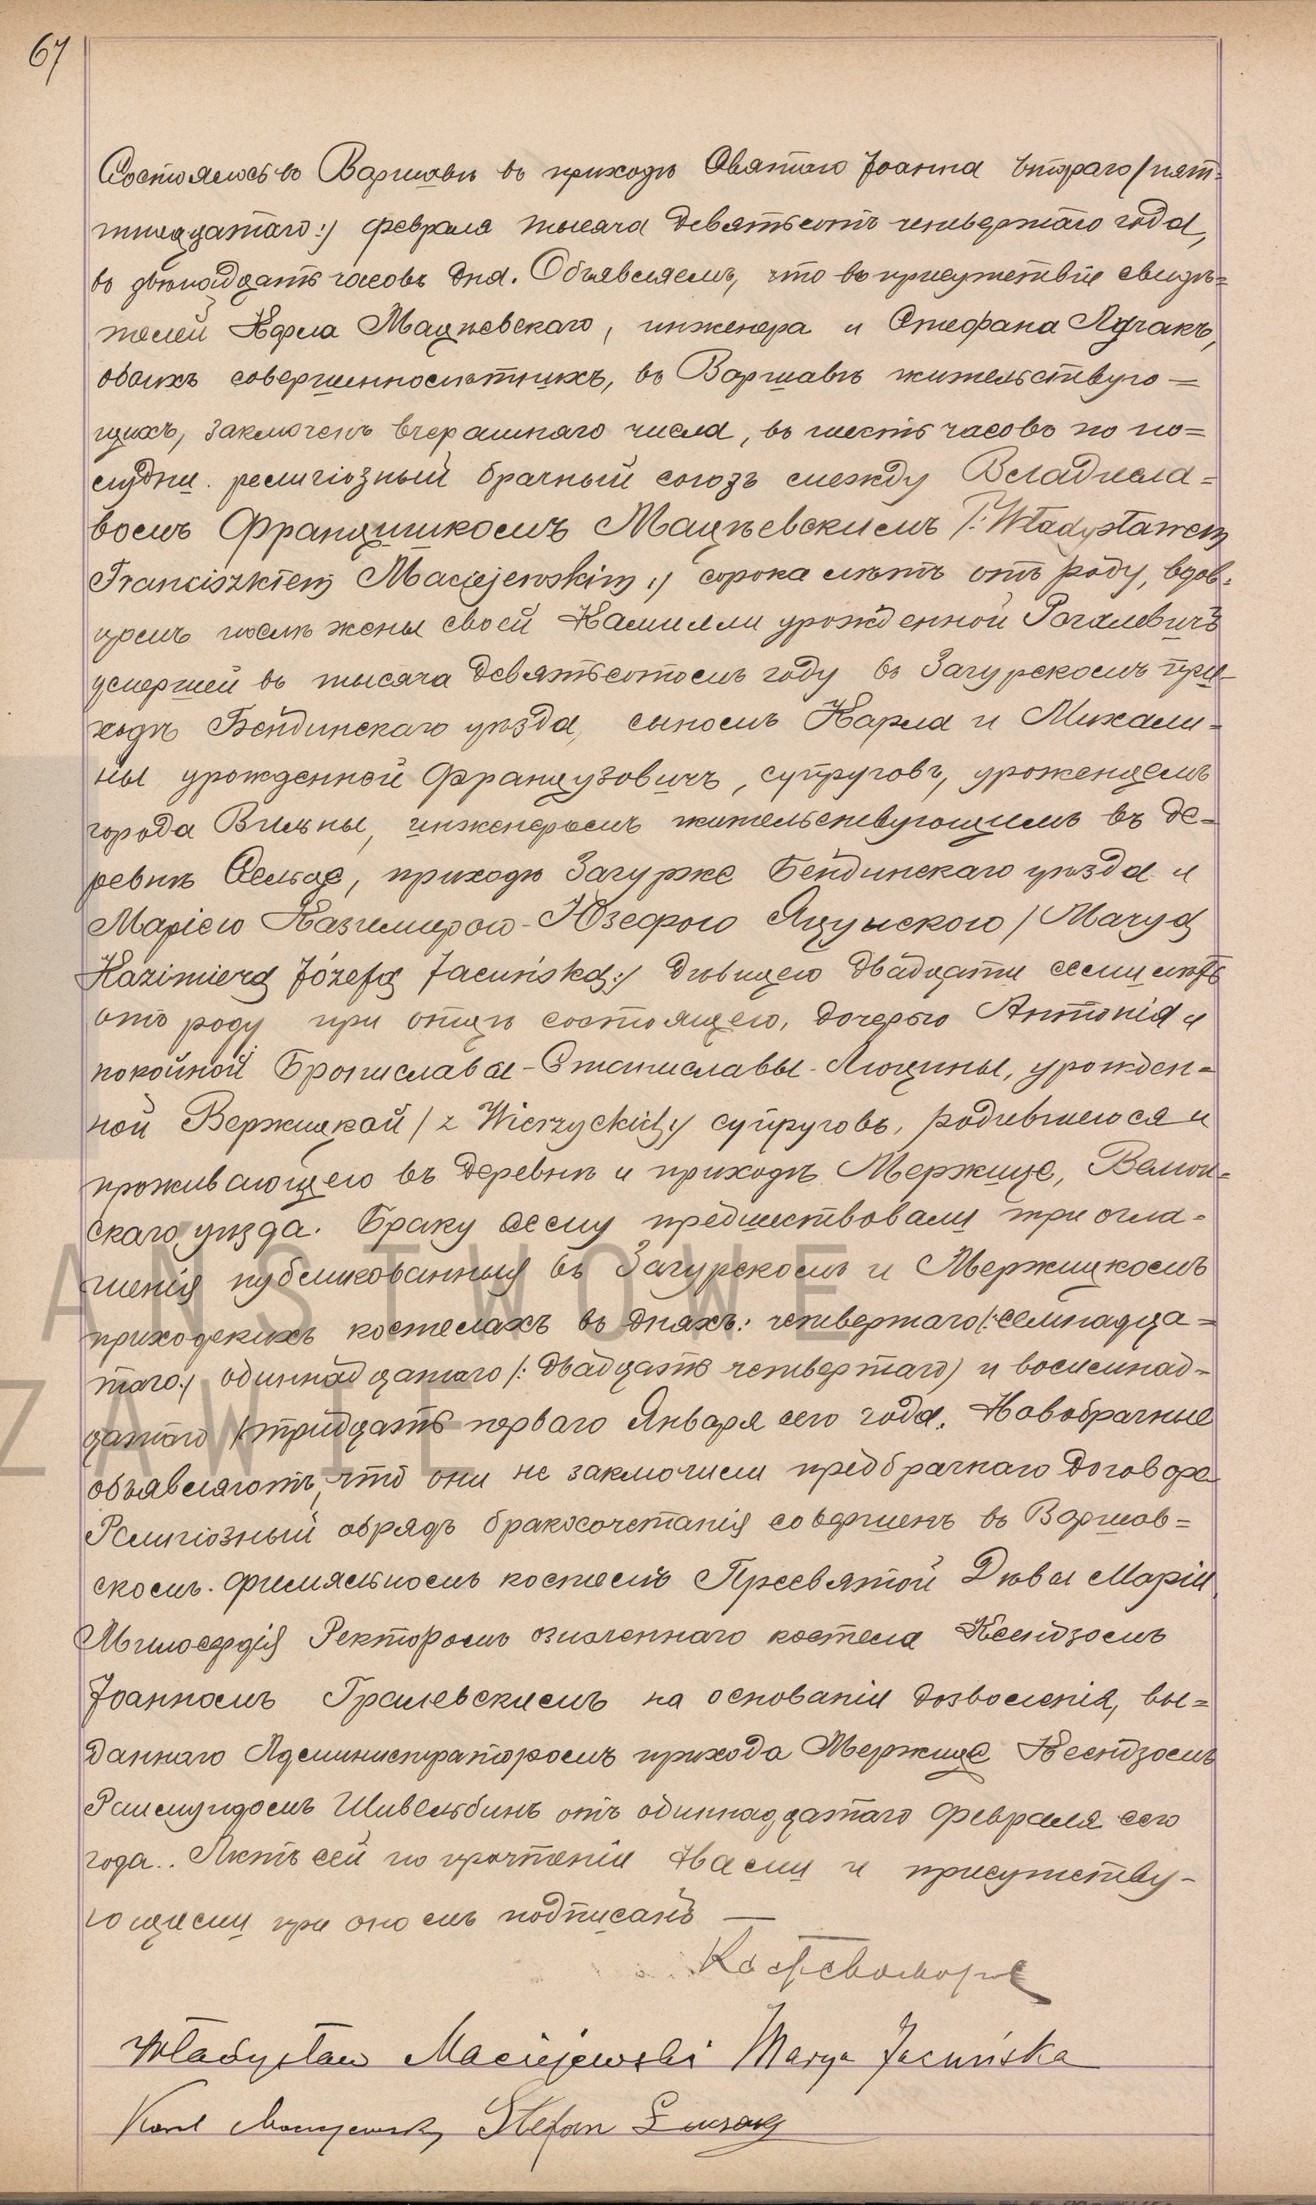 67
Состоялось въ Варшавѣ въ приходѣ Святаго Іоанна втораго /пят-
тнадцатаго:/ февраля тысяча девятьсотъ четвертаго года,
въ двѣнадцать часовъ дня. Объявляемъ, что въ присутствіи свидѣ=
телей Карла Мацѣевскаго, инженера и Стефана
обоихъ совершеннолѣтнихъ, въ Варшавѣ жительствую=
щихъ, заключенъ вчерашняго числа, въ шесть часовъ по по=
лудни религіозный брачный союзъ между Владисла=
вомъ Францишкомъ Мацѣевскимъ /:Władysławem
Franciszkiem Maciejewskim:/ сорока лѣтъ отъ роду, вдов=
цемъ послѣ жены своей Камилли урожденной Рогалевичъ
умершей въ тысяча девятьсотомъ году въ Загурскомъ при-
ходѣ Бендинскаго уѣзда, сыномъ Карла и Михали=
ны урожденной Французовичъ, супруговъ, уроженцемъ
города Вильны, инженеромъ жительствующимъ въ де=
ревнѣ приходѣ Загурже Бендинскаго уѣзда и
Маріею Казимирою-Юзефою Яцуньскою /Maryą
Kazimierą Józefą Jacuńską:/ дѣвицею двадцати семи лѣтъ
отъ роду при отцѣ состоящею, дочерью Антонія и
покойной Брониславы-Станиславы-Люцины, урожден=
ной Вержицкой /z Wierzyckich:/ супруговъ, родившеюся и
проживающею въ деревнѣ и приходѣ Мержице, Велюн=
скаго уѣзда. Браку сему предшествовали три огла=
шенія публикованныя въ Загурскомъ и Мержицкомъ
приходскихъ костелахъ въ дняхъ: четвертаго/:семнадца=
таго:/ одиннадцатаго /:двадцать четвертаго) и восемнад=
цатаго /тридцать перваго Января сего года. Новобрачные
объявляютъ, что они не заключили предбрачнаго договора
Религіозный обрядъ бракосочетанія совершенъ въ Варшав=
скомъ филяльномъ костелѣ Пресвятой Дѣвы Маріи
Милосердія Ректоромъ означеннаго костела Ксендзомъ
Іоанномъ Гралевскимъ на основаніи дозволенія, вы=
даннаго Администраторомъ прихода Мержице Ксендзомъ
Раймундомъ Шивельбинъ отъ одиннадцатаго февраля сего
года.. Актъ сей по прочтеніи Нами и присутству-
ющими при ономъ подписанъ —
Władysław Maciejewski Marya Jacuńska
Karol Maciejewski Stefan